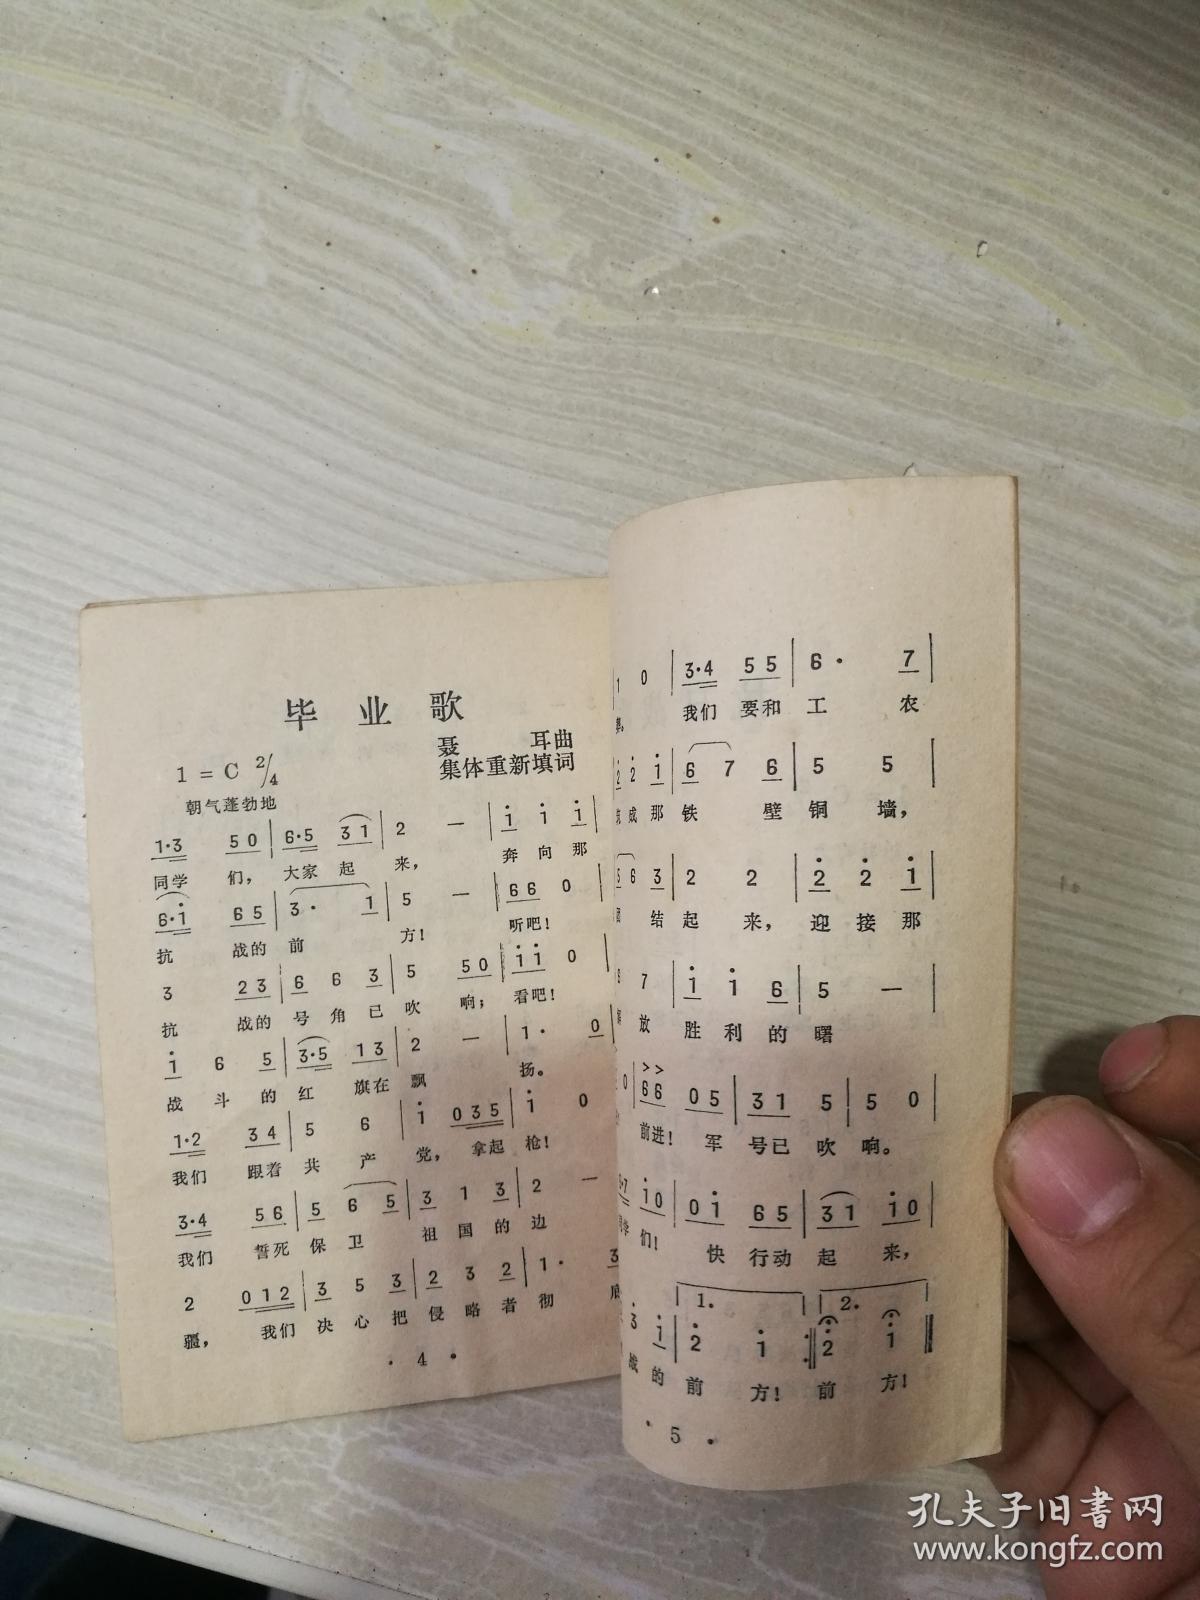 毕业歌
聂耳曲
1=C 2/4
集体重新填词
朝气蓬勃地
1·3 50 6·5 31 2 — i i i
同学 们， 大家 起 来， 奔 向 那
6·i 65 3· 1 5 — 66 0
抗 战的 前 方！ 听吧！
3 23 6 6 3 5 50 ii 0
抗 战的 号 角 已 吹 响； 看吧！
i 6 5 3·5 13 2 — 1· 0
战 斗 的 红 旗在 飘 扬。
1·2 34 5 6 i 035 i 0
我们 跟着 共 产 党， 拿起 枪！
3·4 56 5 6 5 3 1 3 2 —
我们 誓死 保 卫 祖 国 的 边
2 012 3 5 3 2 3 2 1· 3
疆， 我们 决 心 把 侵 略 者 彻 底
·4·
1 0 3·4 55 6· 7
我们 要和 工 农
2 2 i 6 7 6 5 5
成 那 铁 壁 铜 墙，
5 6 3 2 2 2 2 i
结 起 来， 迎 接 那
7 i i 6 5 —
放 胜 利 的 曙
0 66 05 31 5 5 0
前进！ 军 号已 吹 响。
i0 0i 65 31 i0
们！ 快 行动 起 来，
1. 2.
3 i 2 i 2 i
战 的 前 方！ 前 方！
·5·
孔夫子旧书网
www.kongfz.com